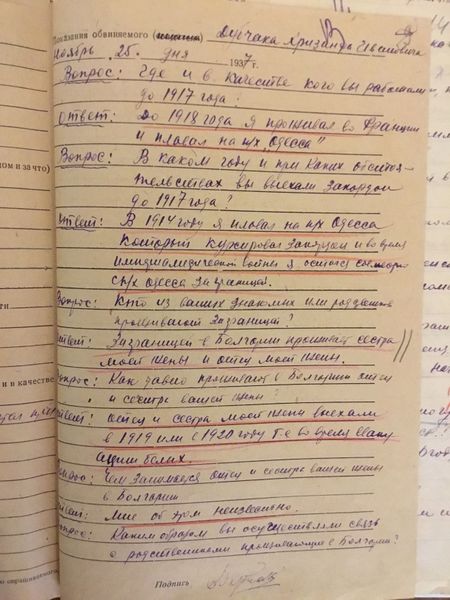 Показания обвиняемого Дубчака Хризанфа
Ноябрь 25 дня 1937 г.
Вопрос: Где и в качестве кого вы работали
до 1917 года?
Ответ: До 1918 года я проживал во Франции
и плавал на п/х "Одесса"
Вопрос: В каком году и при каких обстоя-
тельствах вы выехали Закордон
до 1917 года?
ответ: В 1914 году я плавал на п/х Одесса
который курсировал Закордон и во время
империалистической войны я остался
Одесса Заграницей.
Вопрос: Кто из ваших знакомых или родствен
проживает Заграницей?
ответ: Заграницей в Болгарии проживает сестра
моей жены и отец моей жены.
опрос: Как давно проживают в Болгарии отец
и сестра вашей жены?
твет: отец и сестра моей жены выехали
в 1919 или в 1920 году т.е. во время эваку
ации белых.
Чем занимается отец и сестра вашей жены
в Болгарии
твет: Мне об этом неизвестно.
опрос: Каким образом вы осуществляли связь
с родственниками проживающие в Болгарии?
Подпись